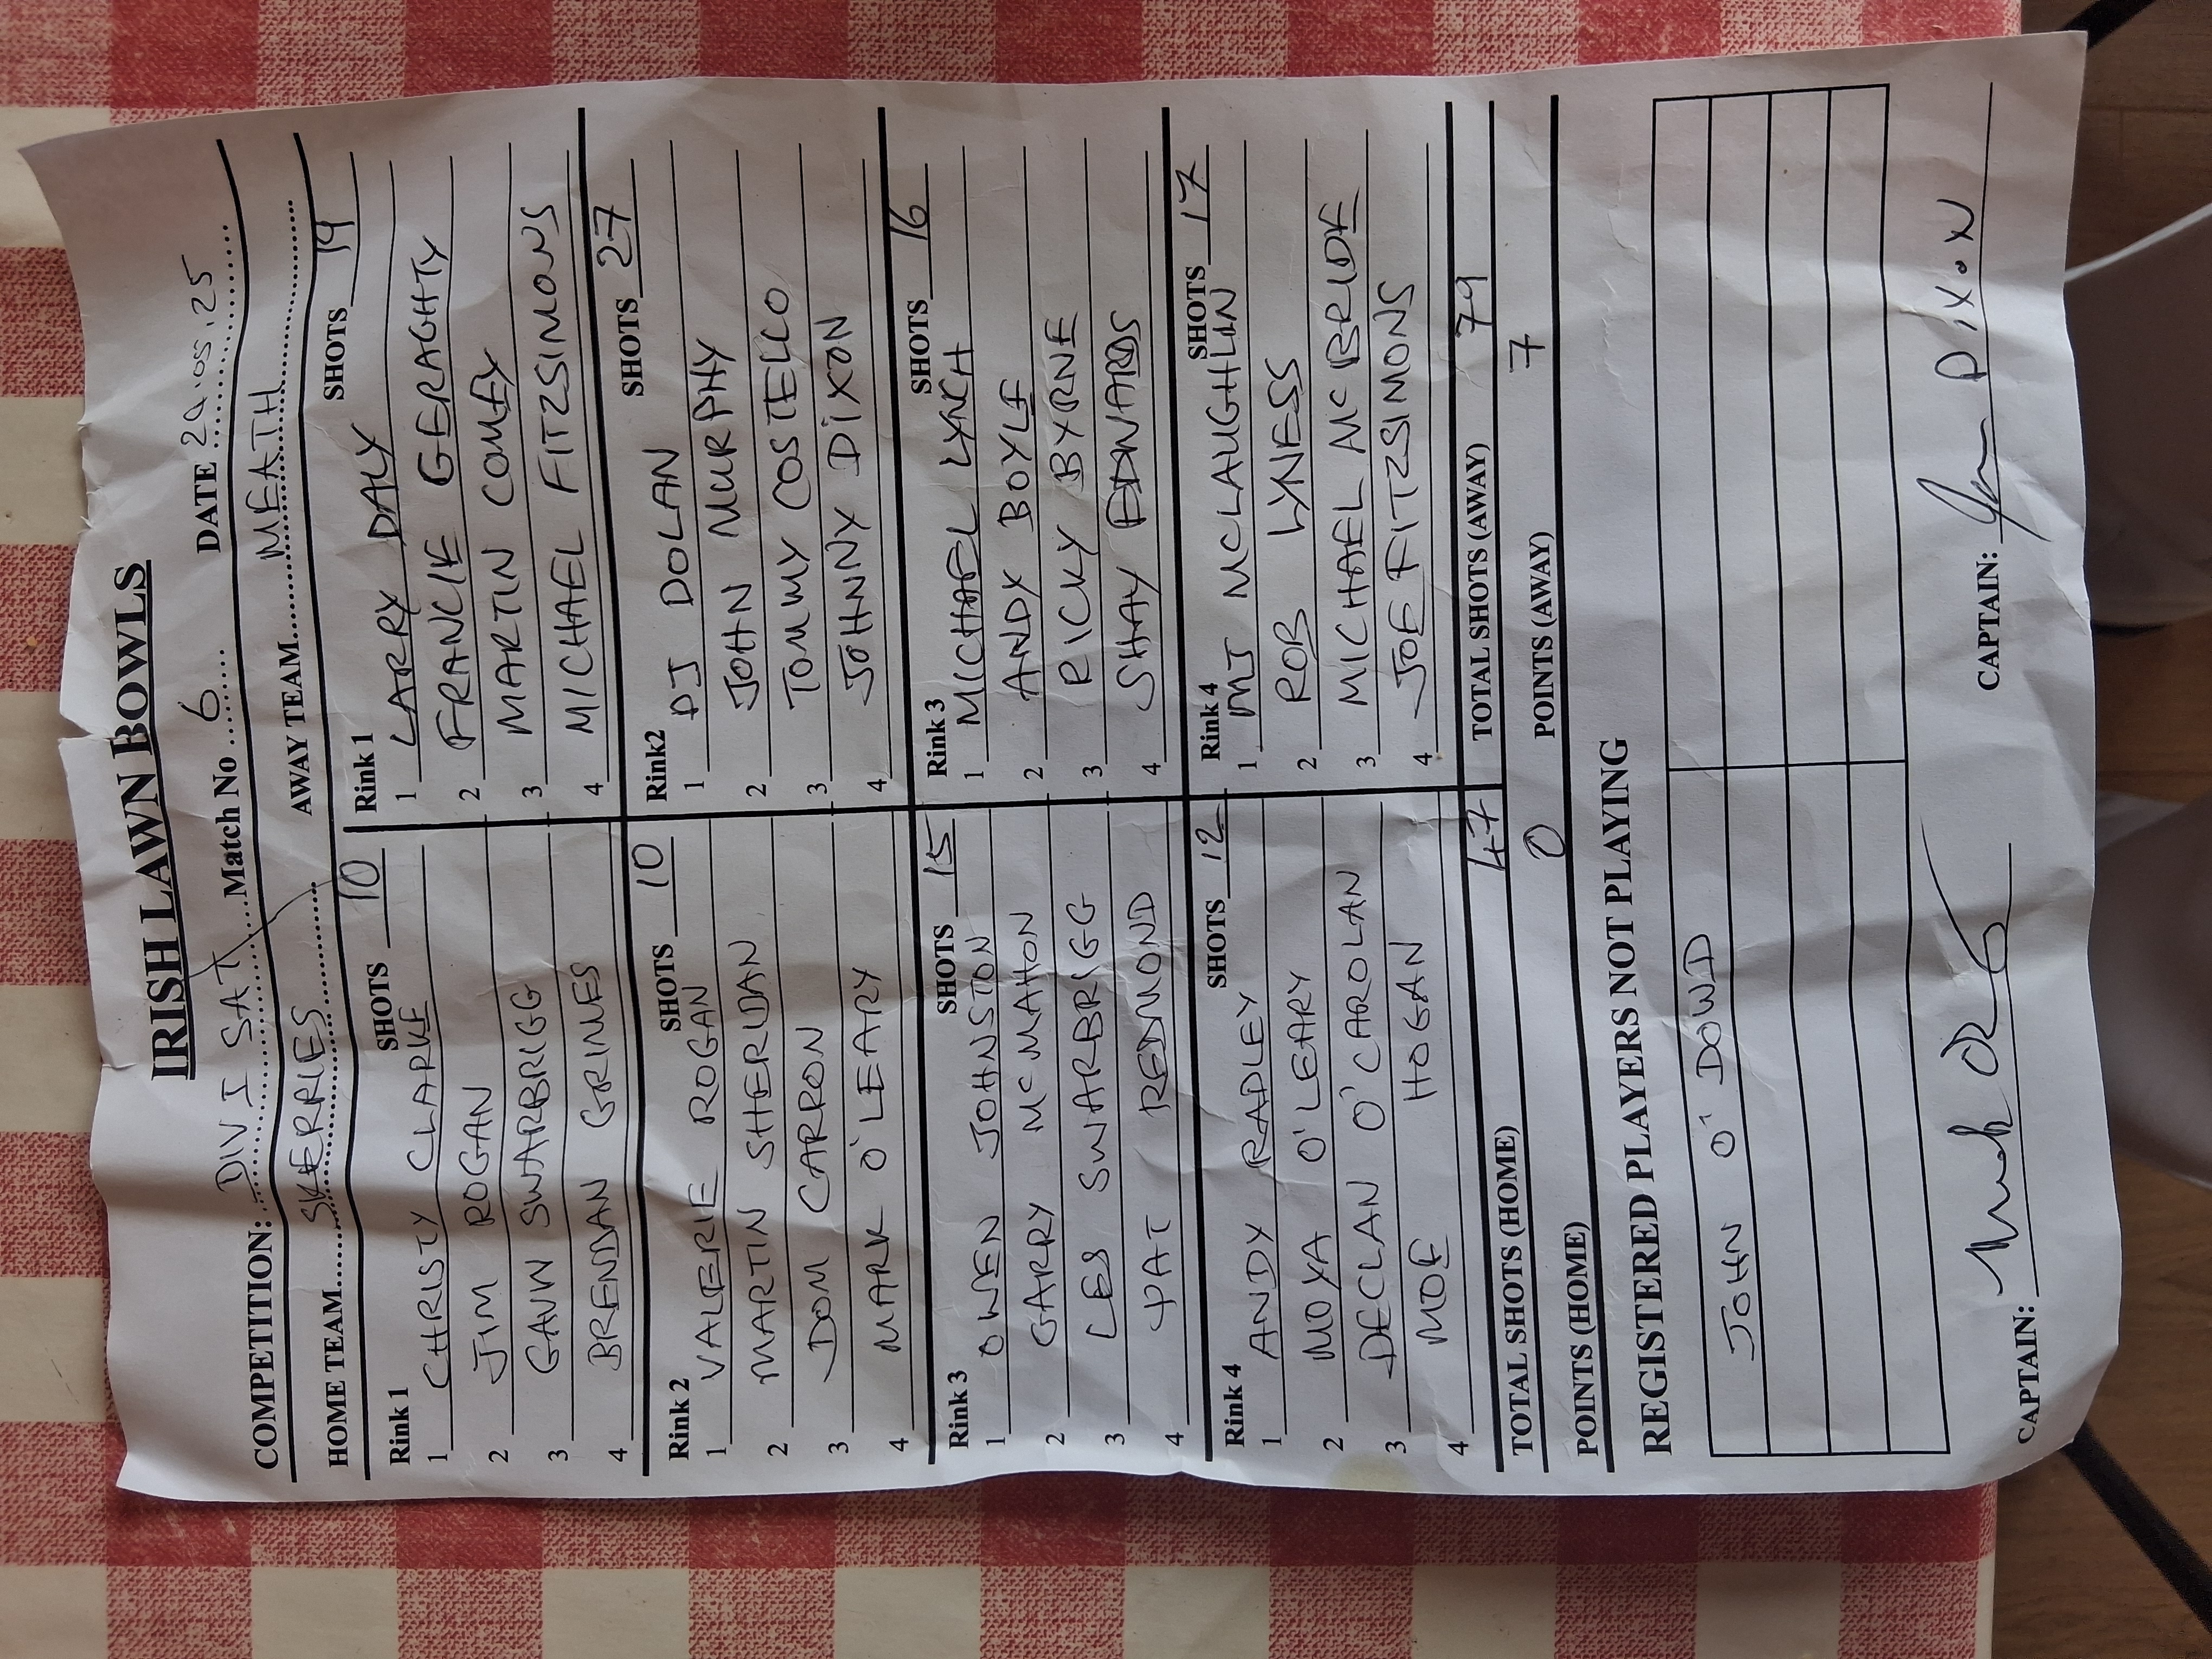 IRISH LAWN BOWLS
COMPETITION: DIV I SAT Match No 6 DATE 24.05.25
HOME TEAM SKERRIES AWAY TEAM MEATH
Rink 1 SHOTS 10
1 CHRISTY CLARKE
2 JIM ROGAN
3 GAVIN SWARBRIGG
4 BRENDAN GRIMES
Rink 1 SHOTS 19
1 LARRY DALY
2 FRANCIE GERAGHTY
3 MARTIN COMEY
4 MICHAEL FITZSIMONS
Rink 2 SHOTS 10
1 VALERIE ROGAN
2 MARTIN SHERIDAN
3 DOM CARRON
4 MARK O'LEARY
Rink2 SHOTS 27
1 PJ DOLAN
2 JOHN MURPHY
3 TOMMY COSTELLO
4 JOHNNY DIXON
Rink 3 SHOTS 15
1 OWEN JOHNSTON
2 GARRY McMAHON
3 LES SWARBRIGG
4 PAT REDMOND
Rink 3 SHOTS 16
1 MICHAEL LYNCH
2 ANDY BOYLE
3 RICKY BYRNE
4 SHAY EDWARDS
Rink 4 SHOTS 12
1 ANDY RADLEY
2 MOYA O'LEARY
3 DECLAN O'CAROLAN
4 MOE HOGAN
Rink 4 SHOTS 17
1 PMJ MCLAUGHLIN
2 ROB LYNESS
3 MICHAEL McBRIDE
4 JOE FITZSIMONS
TOTAL SHOTS (HOME) 47 TOTAL SHOTS (AWAY) 79
POINTS (HOME) 0 POINTS (AWAY) 7
REGISTERED PLAYERS NOT PLAYING
JOHN O'DOWD
CAPTAIN: CAPTAIN: DIXON